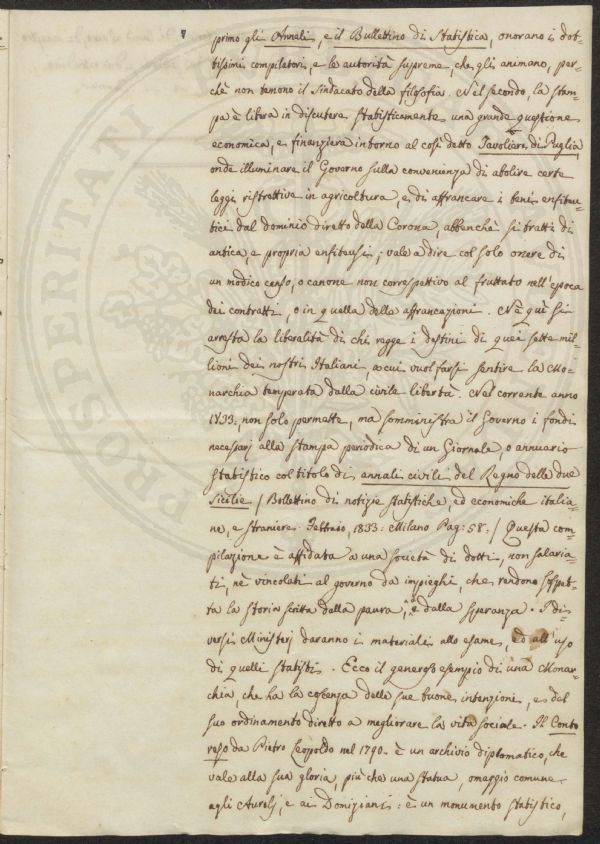 primo gli Annali, e il Bullettino di Statistica, onorano i dot-
tissimi compilatori, e le autorità supreme, che gli animano, per-
chè non temono il Sindacato della filosofia. Nel secondo, la stam-
pa è libera in discutere statisticamente una grande questione
economica, e finanziera intorno al così detto Tavoliere di Puglia,
onde illuminare il Governo sulla convenienza di abolire certe
leggi ristrettive in agricoltura, e di affrancare i beni enfiteu-
tici dal dominio diretto della Corona, abbenchè si tratti di
antica, e propria enfiteusi; vale a dire col solo onere di
un modico censo, o canone non correspettivo al fruttato nell'epoca
dei contratti, o in quella della affrancazione. Nè quì si
arresta la liberalità di chi regge i destini di quei sette mil-
lioni dei nostri Italiani a cui vuol farsi sentire la Mo-
narchia temperata dalla civile libertà. Nel corrente anno
1833. non solo permette, ma somministra il Governo i fondi
necessarj alla stampa periodica di un Giornale, o annuario
Statistico col titolo di annali civili del Regno delle due
Sicilie / Bollettino di notizie statistiche, ed economiche italia-
ne, e straniere. Febbraio, 1833: Milano Pag: 58. / Questa com-
pilazione è affidata a una società di dotti, non salaria-
ti, nè vincolati al governo da impieghi, che rendono sospet-
ta la storia scritta dalla paura, o dalla speranza. I di-
versi Ministerj daranno i materiali allo esame, ed all'uso
di quelli statisti. Ecco il generoso esempio di una Monar-
chia, che ha la coscenza delle sue buone intenzioni, e del
suo ordinamento diretto a megliorare la vita sociale. Il Conto
reso da Pietro Leopoldo nel 1790. è un archivio diplomatico, che
vale alla sua gloria, più che una statua, omaggio comune
agli Aurelj, e ai Domiziani: è un monumento statistico,
PROSPERITATI